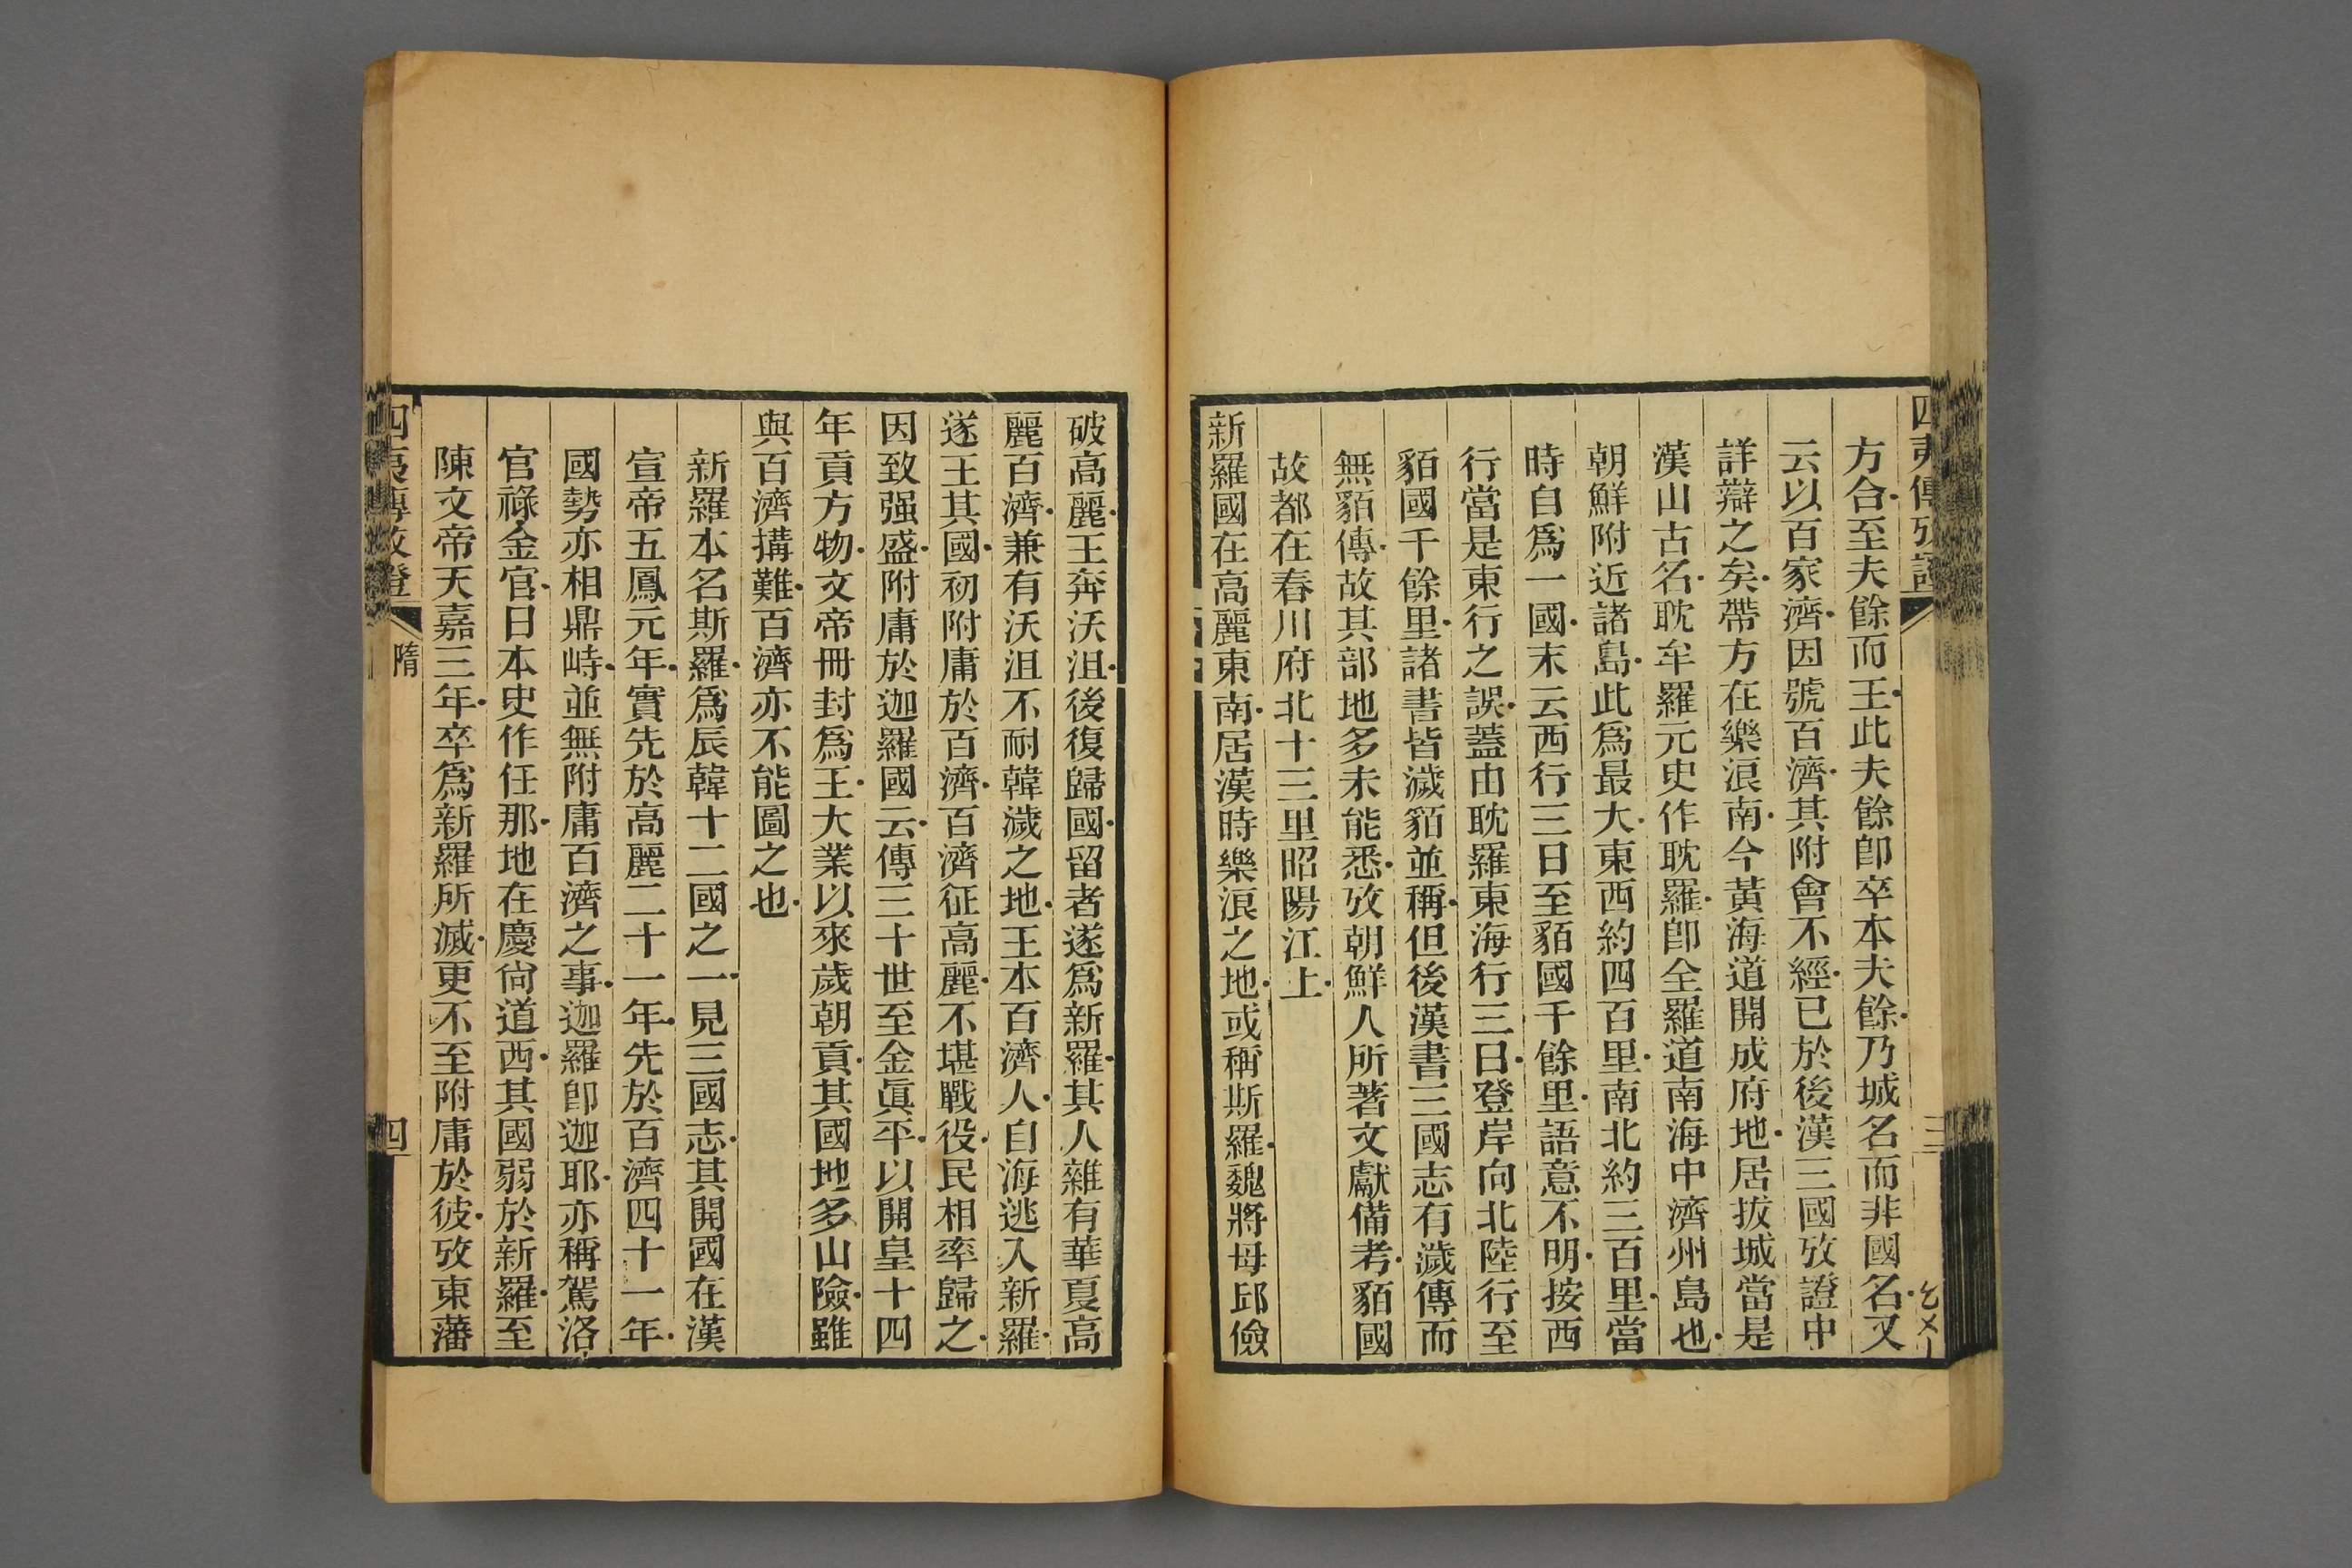 四夷傳攷證
三
方合至夫餘而王此夫餘卽卒本夫餘乃城名而非國名又
云以百家濟因號百濟其附會不經已於後漢三國攷證中
詳辯之矣帶方在樂浪南今黃海道開成府地居拔城當是
漢山古名耽牟羅元史作耽羅卽全羅道南海中濟州島也
朝鮮附近諸島此爲最大東西約四百里南北約三百里當
時自爲一國末云西行三日至貊國千餘里語意不明按西
行當是東行之誤蓋由耽羅東海行三日登岸向北陸行至
貊國千餘里諸書皆濊貊並稱但後漢書三國志有濊傳而
無貊傳故其部地多未能悉攷朝鮮人所著文獻備考貊國
故都在春川府北十三里昭陽江上
新羅國在高麗東南居漢時樂浪之地或稱斯羅魏將毋邱儉
破高麗王奔沃沮後復歸國留者遂爲新羅其人雜有華夏高
麗百濟兼有沃沮不耐韓濊之地王本百濟人自海逃入新羅
遂王其國初附庸於百濟百濟征高麗不堪戰役民相率歸之
因致强盛附庸於迦羅國云傳三十世至金眞平以開皇十四
年貢方物文帝冊封爲王大業以來歲朝貢其國地多山險雖
與百濟搆難百濟亦不能圖之也
新羅本名斯羅爲辰韓十二國之一見三國志其開國在漢
宣帝五鳳元年實先於高麗二十一年先於百濟四十一年
國勢亦相鼎峙並無附庸百濟之事迦羅卽迦耶亦稱駕洛
官祿金官日本史作任那地在慶尙道西其國弱於新羅至
陳文帝天嘉三年卒爲新羅所滅更不至附庸於彼攷東藩
四夷傳攷證
隋
四